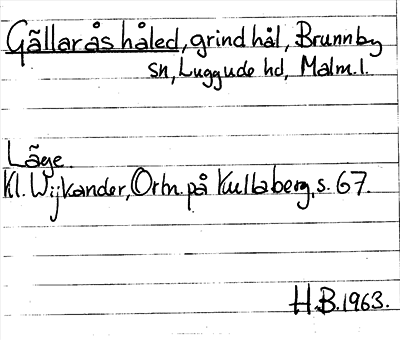 Gällarås håled, grind hål, Brunnby
sn, Luggude hd, Malm. l.
Läge.
Kl. Wijkander, Ortn. på Kullaberg, s. 67.
H.B. 1963.